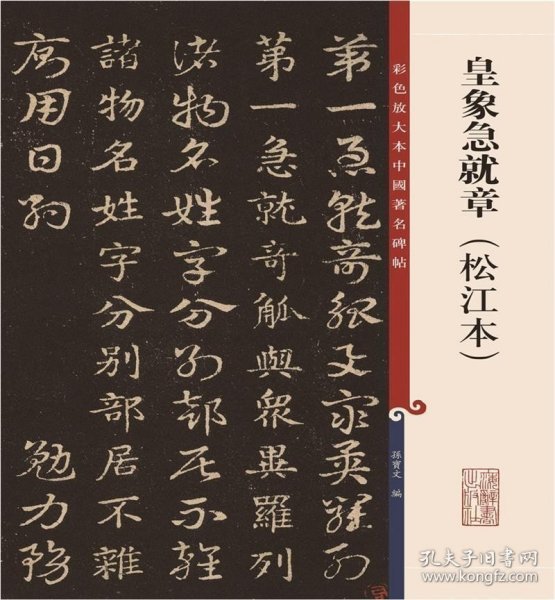 皇象急就章（松江本）
彩色放大本中國著名碑帖
孫寶文 編
第一急就奇觚與衆異羅列
第一急就奇觚與衆異羅列
諸物名姓字分別部居不雜
諸物名姓字分別部居不雜
廁用日約 勉力務
孔夫子旧书网
www.kongfz.com